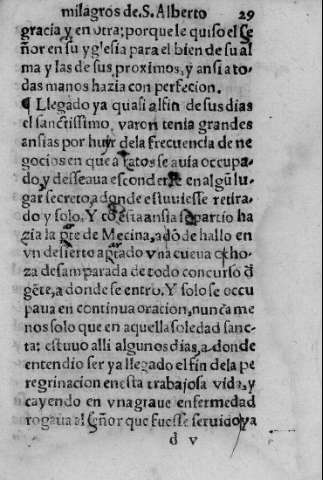 milagros de.S. Alberto 29
gracia y en otra: porque le quiso el Se
ñor en su yglesia para el bien de su al
ma y las de sus proximos, y ansi a to-
das manos hazia con perfecion.
¶ Llegado ya quasi al fin de sus dias
el sanctissimo varon tenia grandes
ansias por huyr de la frecuencia de ne
gocios en que a ratos se auia occupa-
do, y desseaua esconderse en algũ lu-
gar secreto, a donde estuuiesse retira-
do y solo. Y cõ esta ansia se partio ha
zia la parte de Mecina, adõde hallo en
vn desierto apartado vna cueua o cho-
za desamparada de todo concurso d̃
gẽte, a donde se entro. Y solo se occu
paua en continua oracion, nunca me
nos solo que en aquella soledad sanc-
ta: estuuo alli algunos dias, a donde
entendio ser ya llegado el fin de la pe
regrinacion en esta trabajosa vida, y
cayendo en vna graue enfermedad
rogaua al Señor que fuesse seruido ya
d v